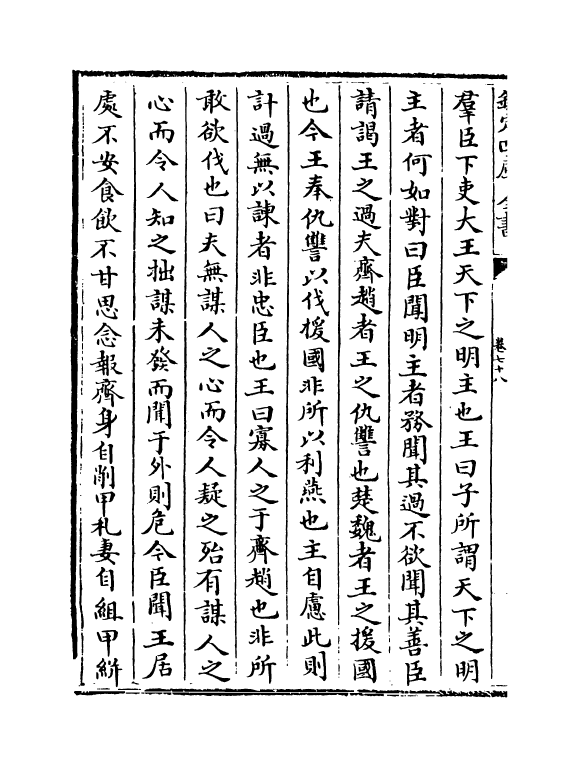 欽定四庫全書
卷七十八
羣臣下吏大王天下之明主也王曰子所謂天下之明
主者何如對曰臣聞明主者務聞其過不欲聞其善臣
請謁王之過夫齊趙者王之仇讐也楚魏者王之援國
也今王奉仇讐以伐援國非所以利燕也主自慮此則
計過無以諫者非忠臣也王曰寡人之于齊趙也非所
敢欲伐也曰夫無謀人之心而令人疑之殆有謀人之
心而令人知之拙謀未發而聞于外則危今臣聞王居
處不安食飲不甘思念報齊身自削甲札妻自組甲絣